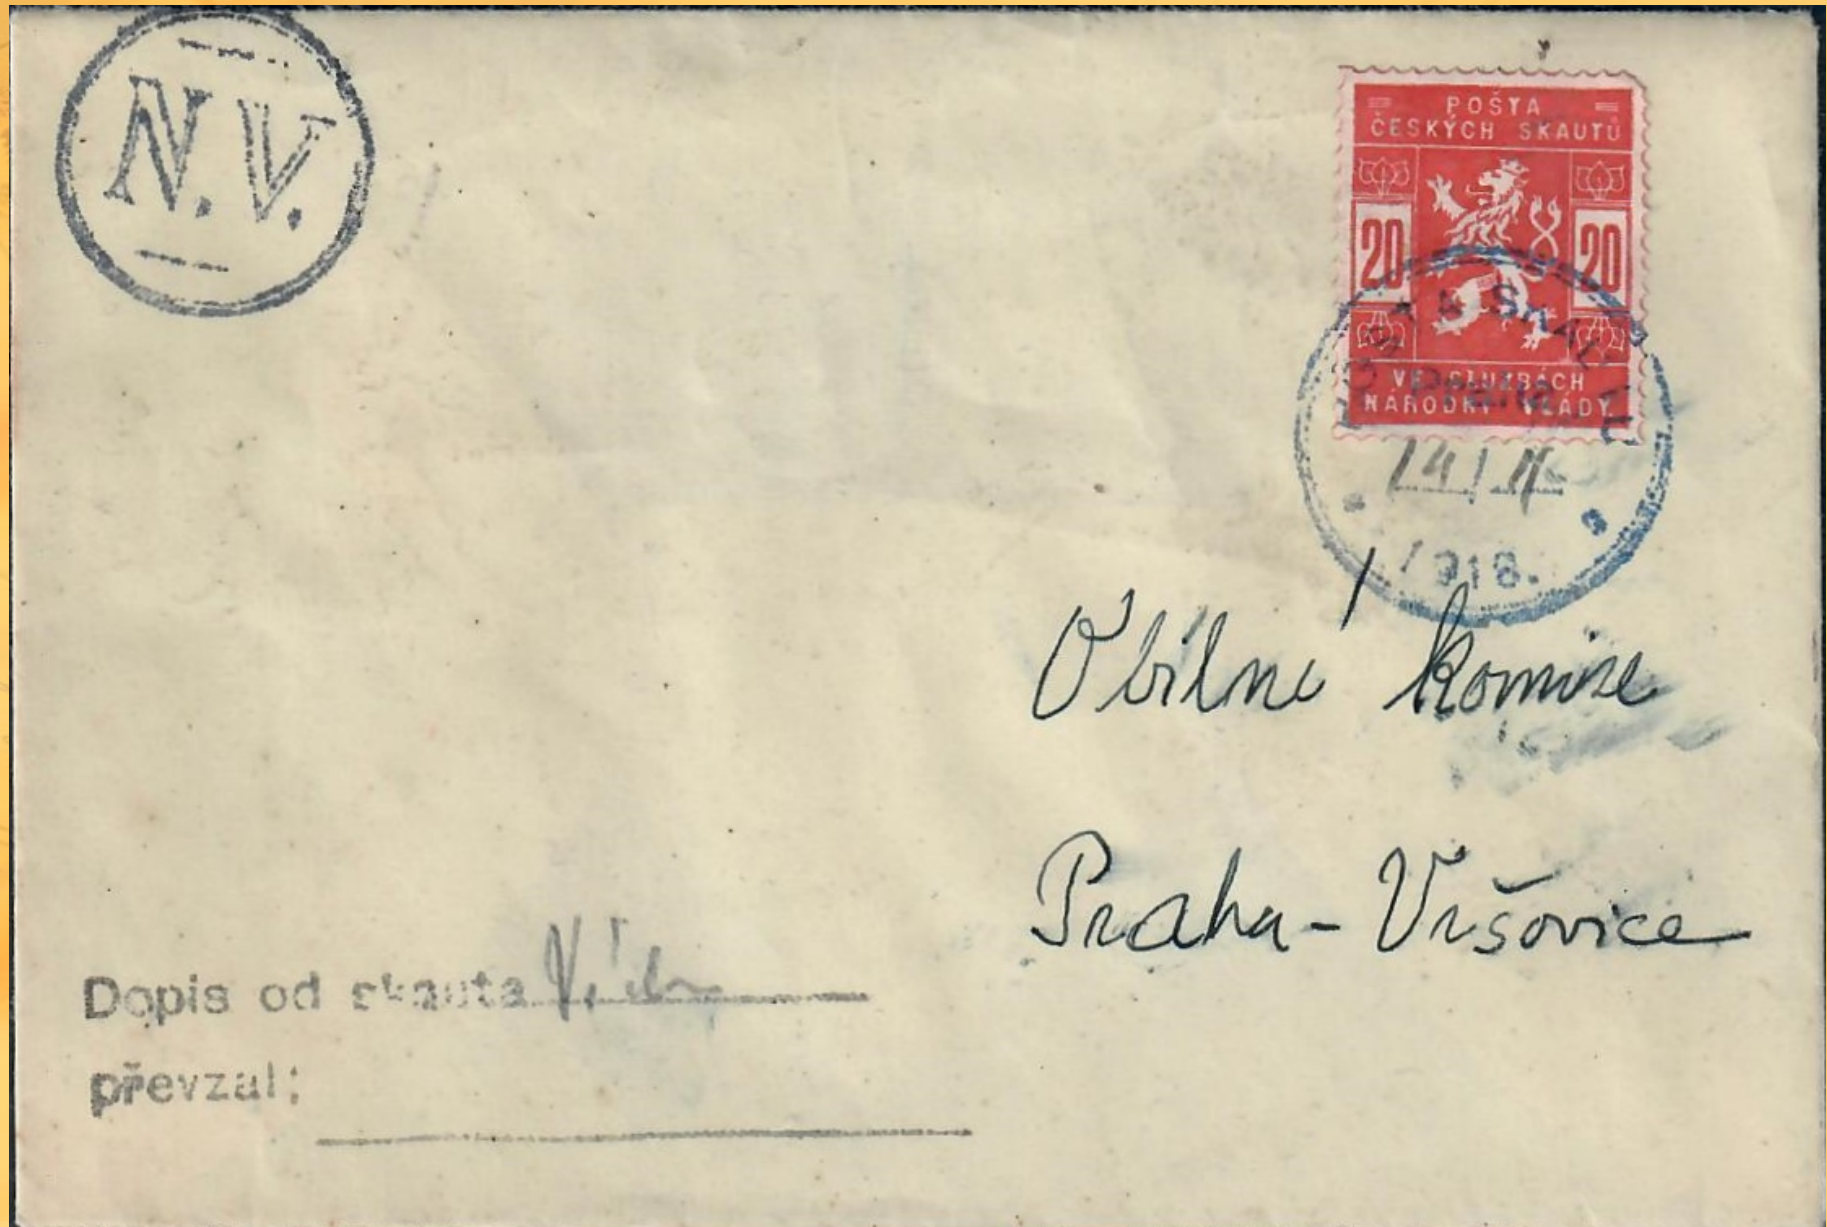 N. V.
POŠTA
ČESKÝCH SKAUTŮ
20 20
VE SLUŽBÁCH
NÁRODNÍ VLÁDY
POŠTA SKAUTŮ
Praha
14 / 11
1918.
Obilní komise
Praha - Vršovice
Dopis od skauta
převzal: